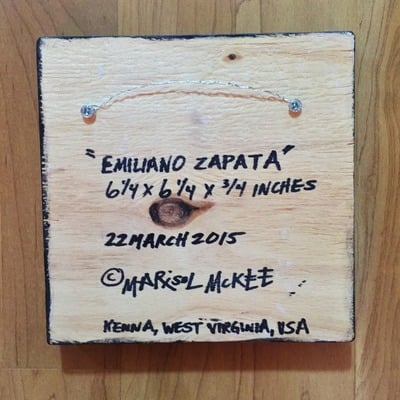 "EMILIANO ZAPATA"
6 1/4 x 6 1/4 x 3/4 INCHES
22 MARCH 2015
© MARisOL McKEE
KENNA, WEST VIRGINIA, USA